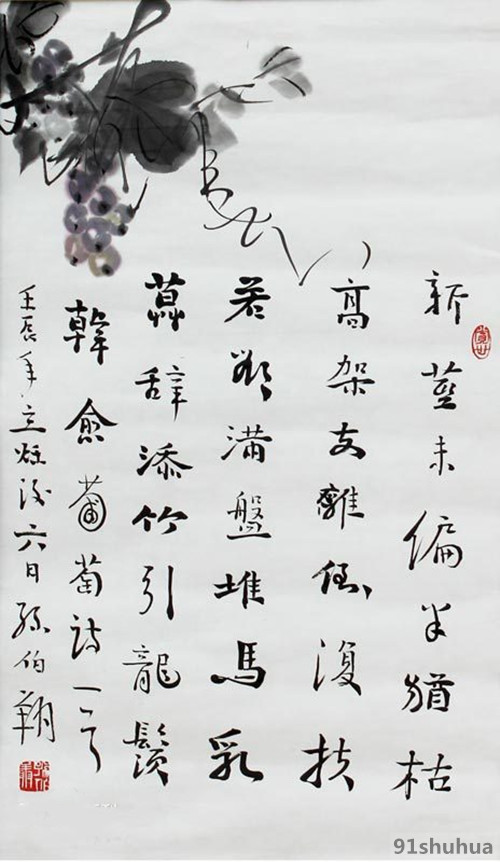 新莖未徧半猶枯
高架支離倒復扶
若欲滿盤堆馬乳
莫辭添竹引龍鬚
韓愈葡萄詩一首
壬辰年立秋後六日孫伯翔
91shuhua